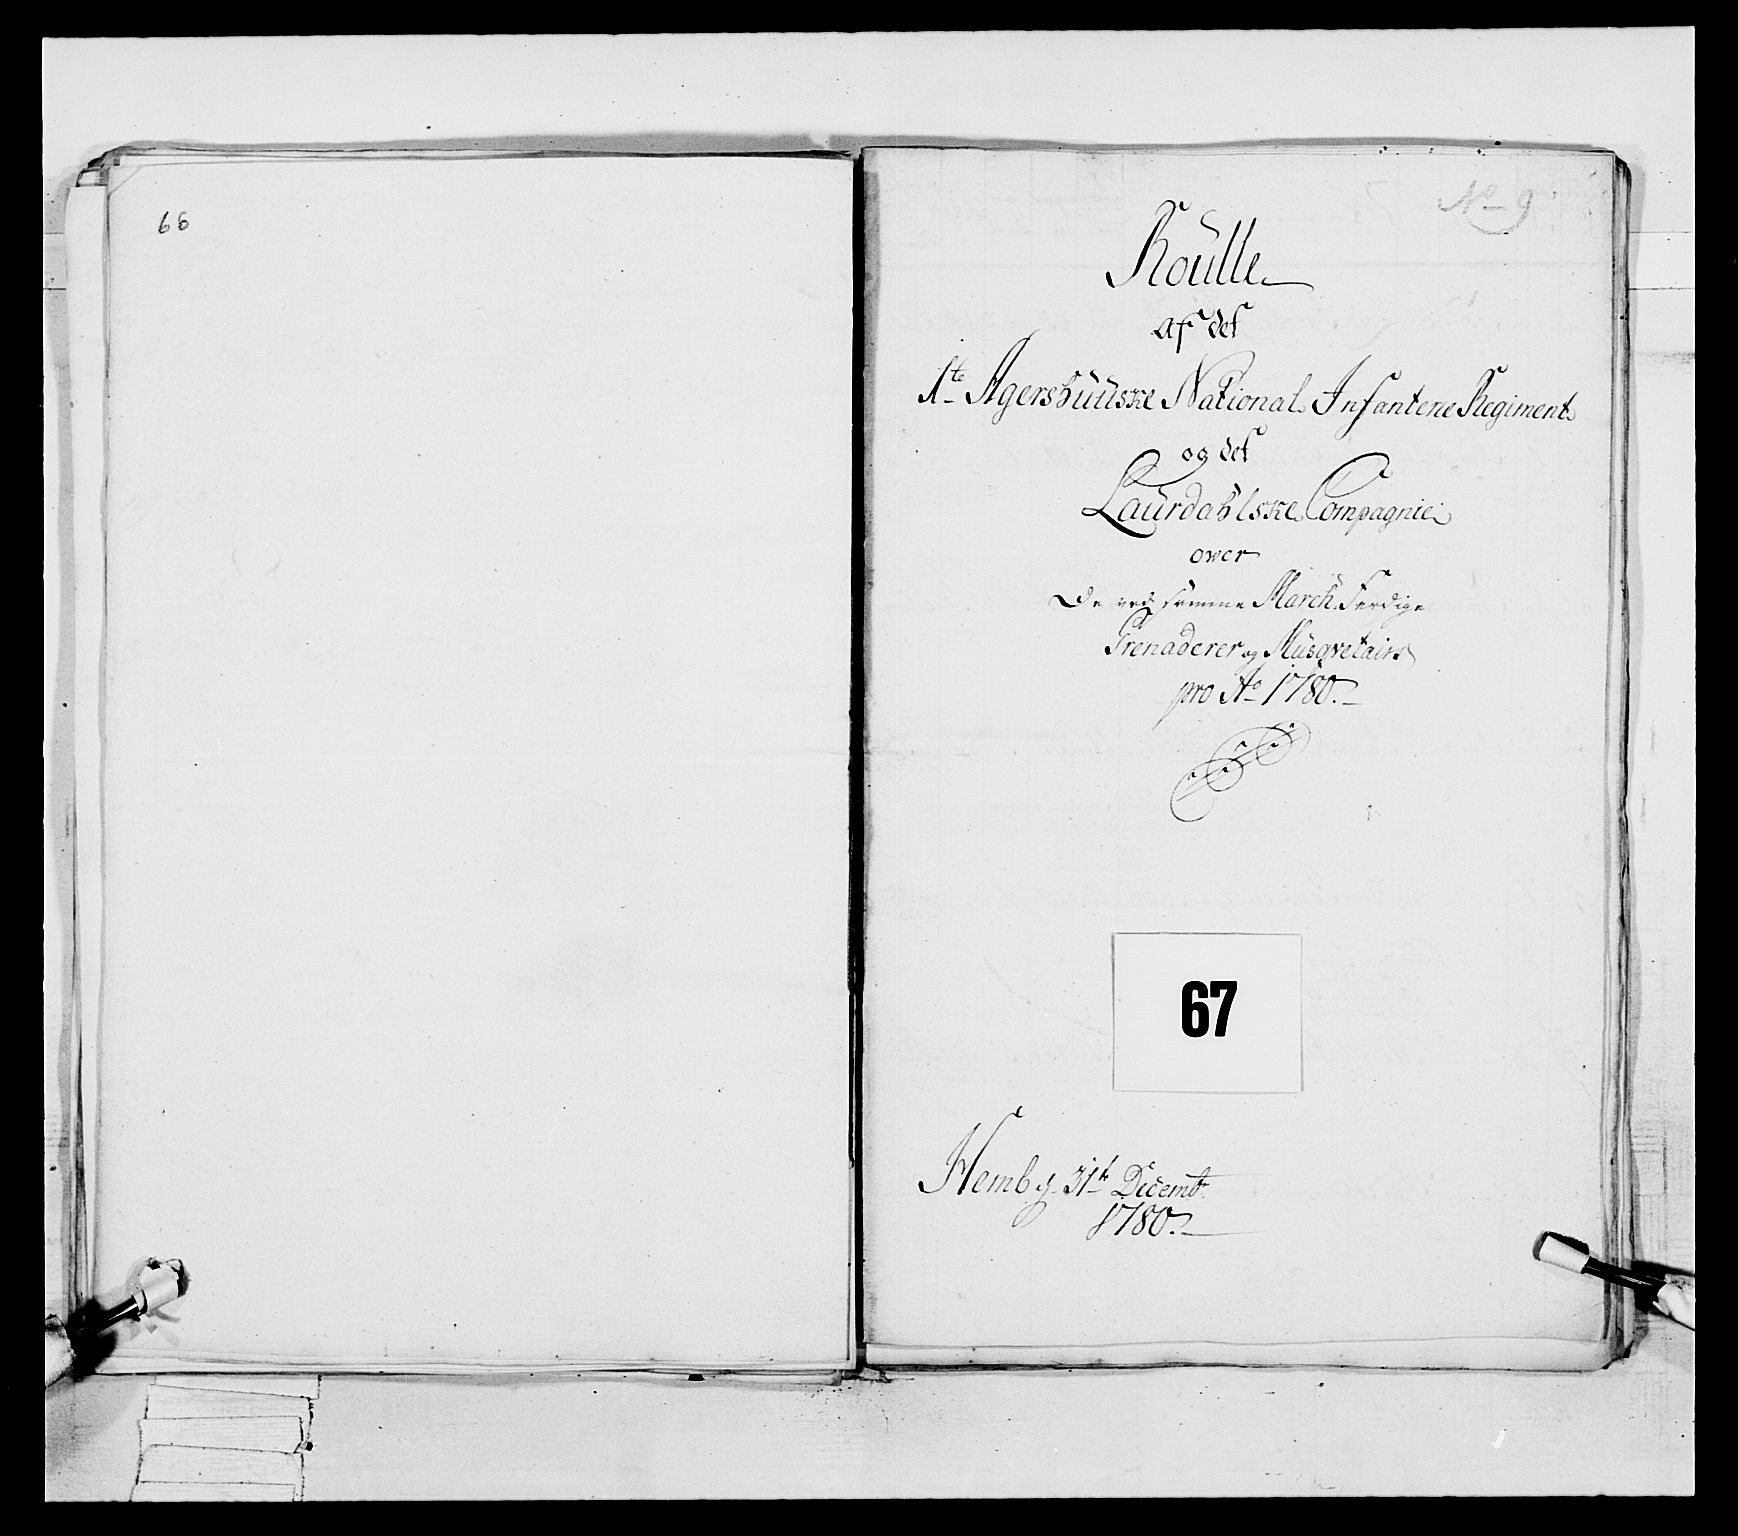 68
No 9
Roulle
af det
1te Agershuuske National Infanterie Regiment
og det
Laurdahlske Compagnie
over
De ved samme March Færdige
Grenaderer og Musqvetairs
pro Ao 1780.
67
Hemb g. 31te Decembr.
1780.